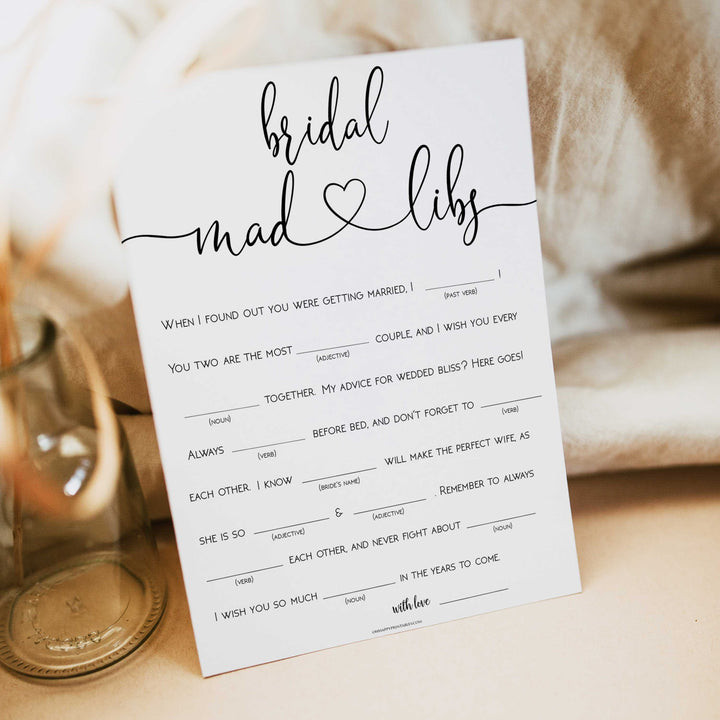 bridal
mad libs
WHEN I FOUND OUT YOU WERE GETTING MARRIED, I ________ !
(PAST VERB)
YOU TWO ARE THE MOST ________ COUPLE, AND I WISH YOU EVERY
(ADJECTIVE)
________ TOGETHER. MY ADVICE FOR WEDDED BLISS? HERE GOES!
(NOUN)
ALWAYS ________ BEFORE BED, AND DON'T FORGET TO ________
(VERB) (VERB)
EACH OTHER. I KNOW ________ WILL MAKE THE PERFECT WIFE, AS
(BRIDE'S NAME)
SHE IS SO ________ & ________ . REMEMBER TO ALWAYS
(ADJECTIVE) (ADJECTIVE)
________ EACH OTHER, AND NEVER FIGHT ABOUT ________
(VERB) (NOUN)
I WISH YOU SO MUCH ________ IN THE YEARS TO COME.
(NOUN)
with love ________
OHHAPPYPRINTABLES.COM